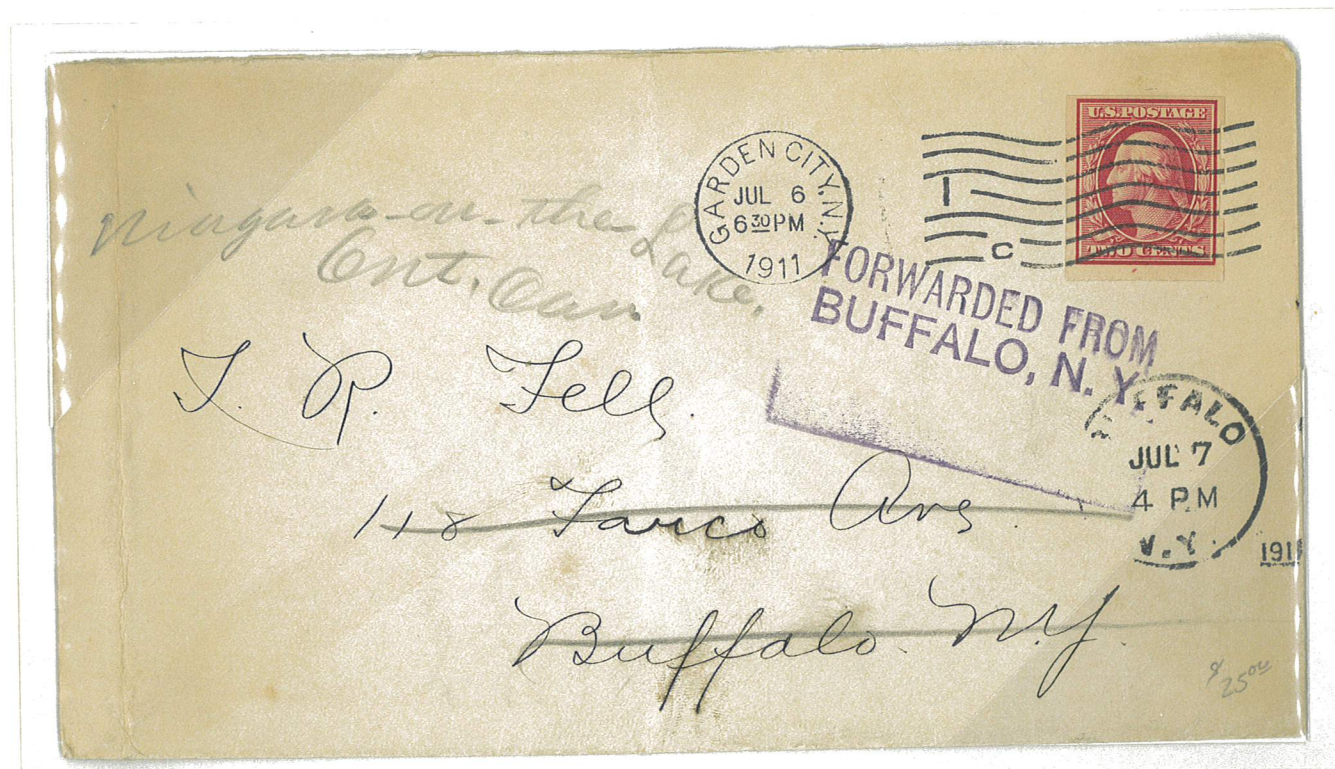 U.S. POSTAGE
TWO CENTS
GARDEN CITY, N.Y.
JUL 6
6 30 PM
1911
1
C
Niagara-on-the-Lake,
Ont. Can.
FORWARDED FROM
BUFFALO, N. Y.
BUFFALO
JUL 7
4 PM
N.Y.
1911
T. R. Fell.
118 Ave.
Buffalo N.Y.
$25 00